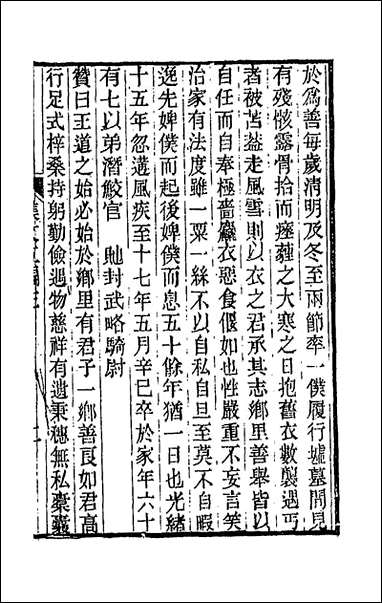 於爲善每歲淸明及冬至兩節率一僕履行墟墓間見
有殘骸露骨拾而瘞薶之大寒之日抱舊衣數襲遇丐
者被苫葢走風雪則以衣之君承其志鄉里善舉皆以
自任而自奉極嗇麤衣惡食偃如也性嚴重不妄言笑
治家有法度雖一粟一絲不以自私自旦至莫不自暇
逸先婢僕而起後婢僕而息五十餘年猶一日也光緒
十五年忽遘風疾至十七年五月辛巳卒於家年六十
有七以弟潛鮫官　貤封武略騎尉
贊曰王道之始必始於鄉里有君子一鄉善良如君高
行足式梓桑持躬勤儉遇物慈祥有遺秉穗無私橐囊